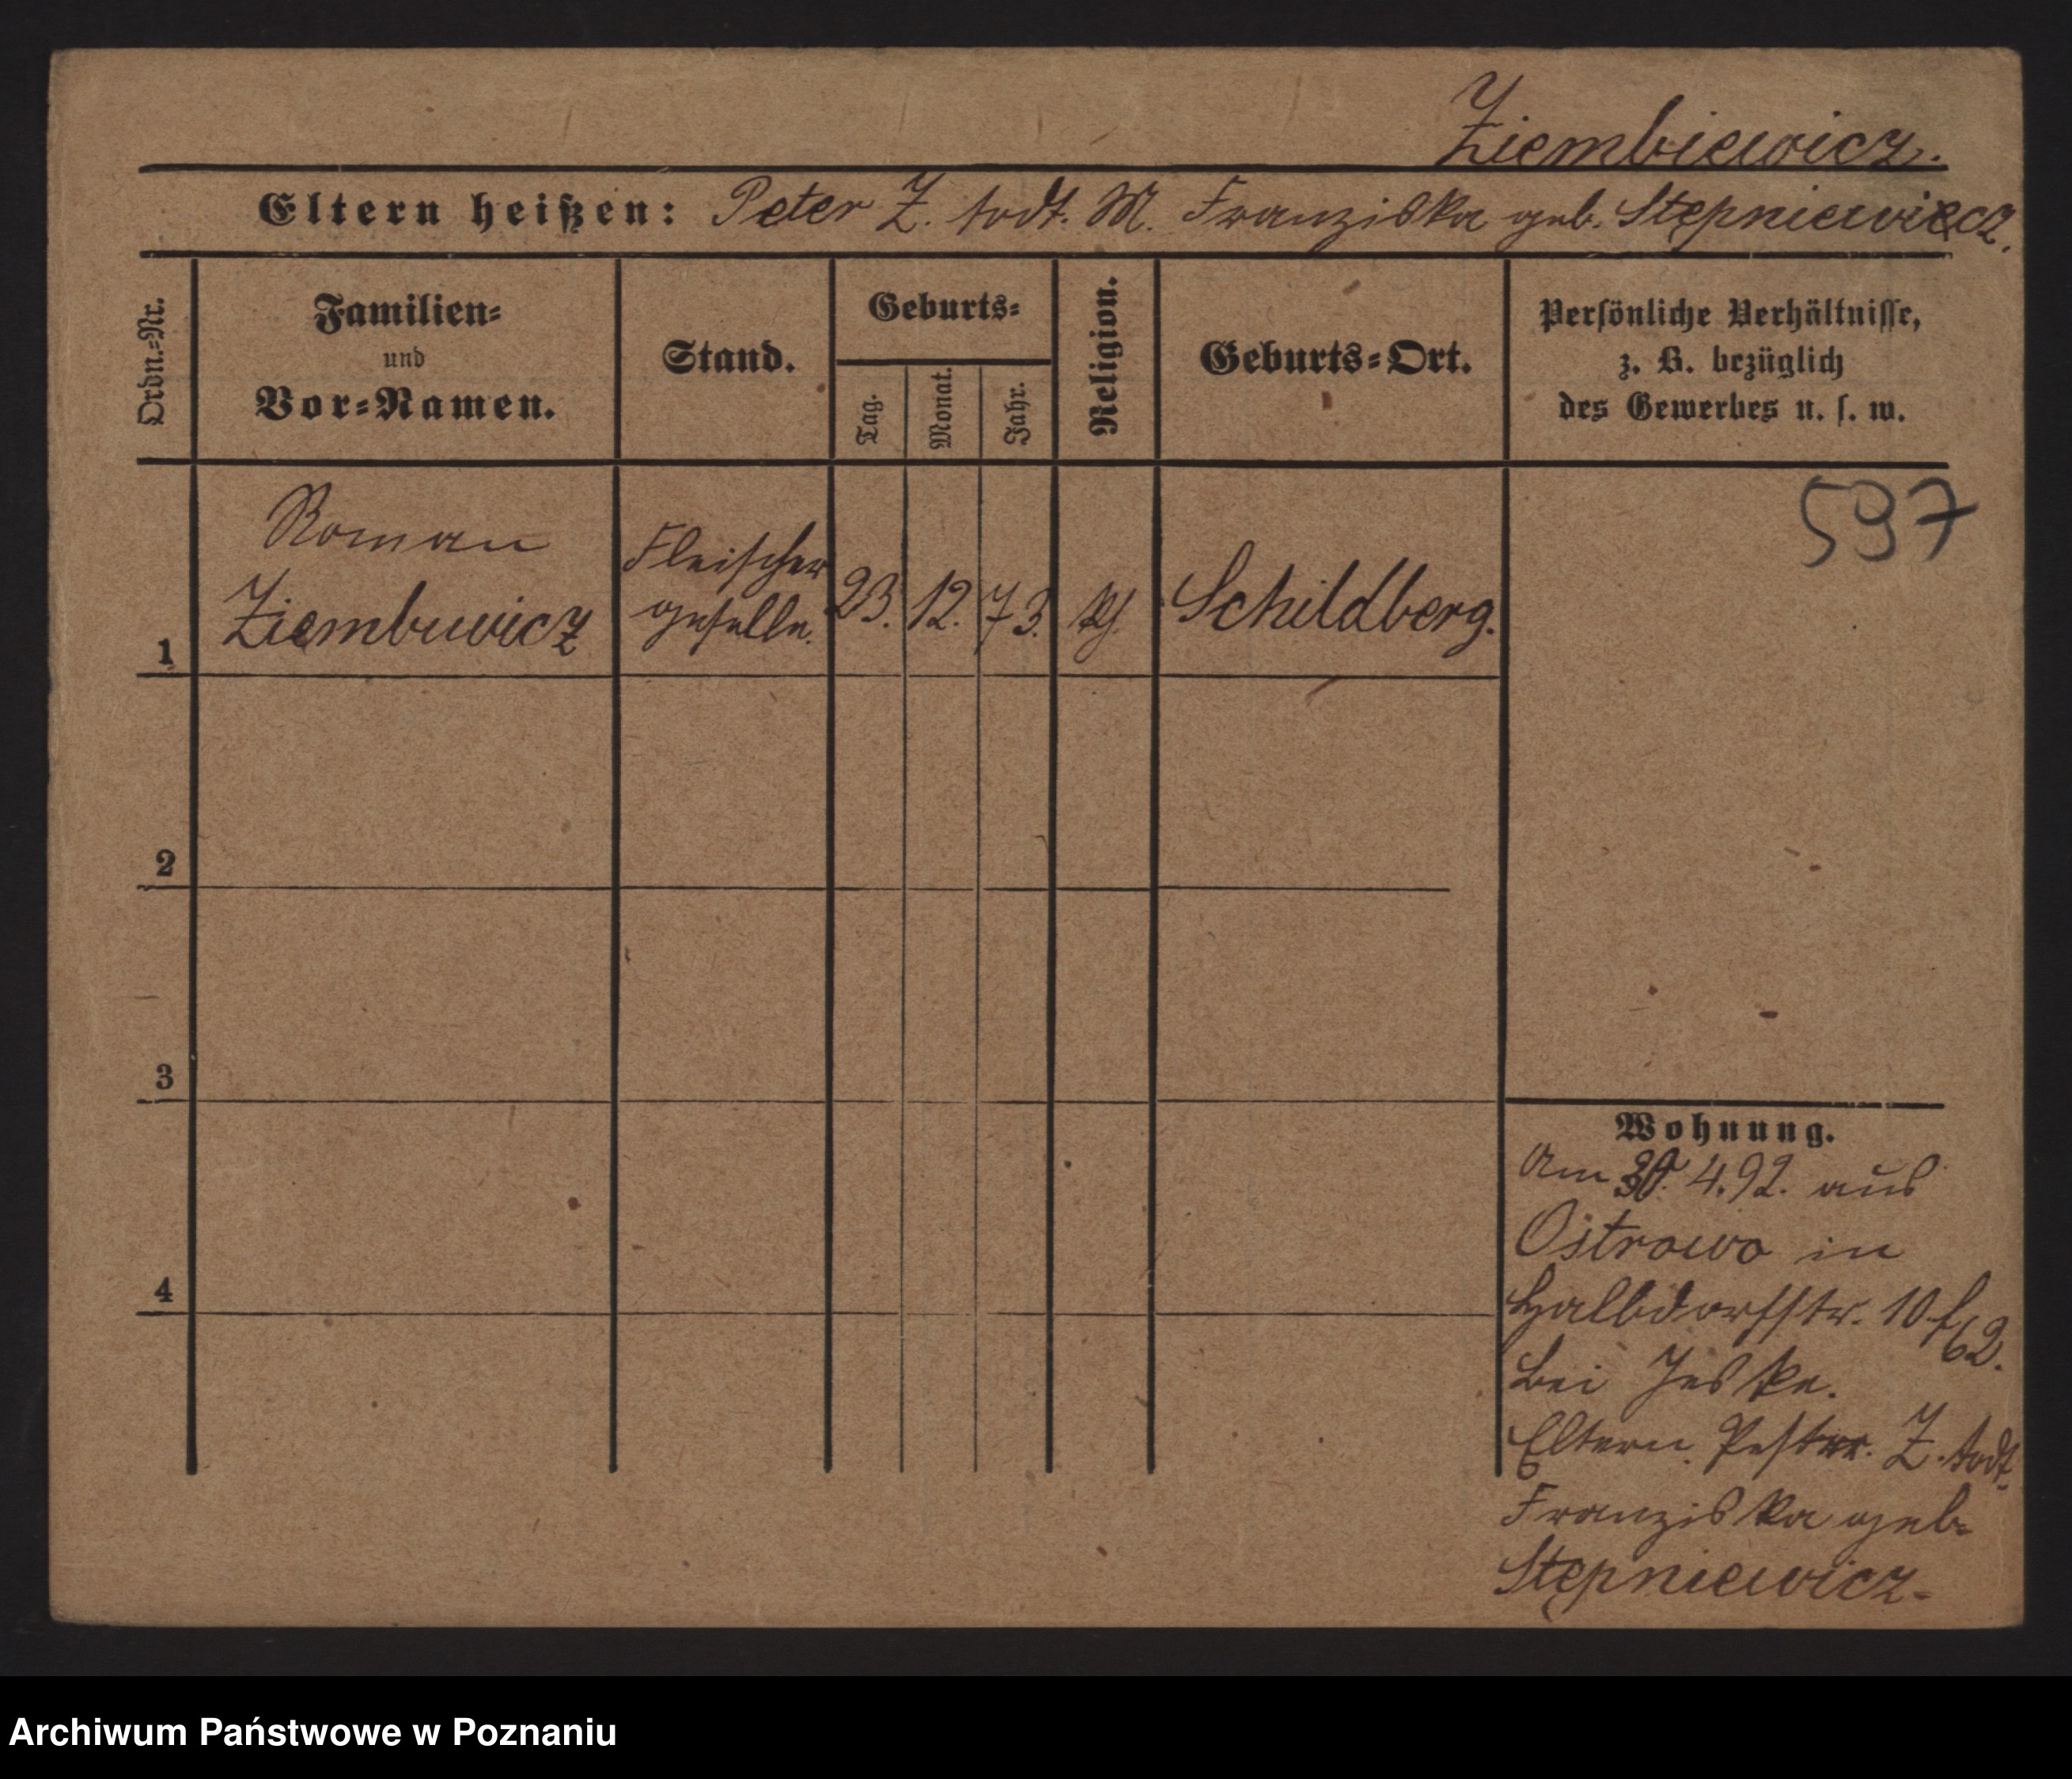 Ziembiewicz.
Eltern heißen: Peter Z. todt. M. Franziska geb. Stępniewicz.
Ordn.=Nr.
Familien=
und
Vor=Namen.
Stand.
Geburts=
Tag.
Monat.
Jahr.
Religion.
Geburts=Ort.
Persönliche Verhältnisse,
z. B. bezüglich
des Gewerbes u. s. w.
597
Roman
Fleischer
1 Ziembiewicz geselle. 23. 12. 73. Schildberg.
2
3
4
Wohnung.
Am 30. 4. 92. aus
Ostrowo in
Halbdorfstr. 10
bei Jeske.
Eltern Z. todt.
Franziska geb.
Stępniewicz.
Archiwum Państwowe w Poznaniu